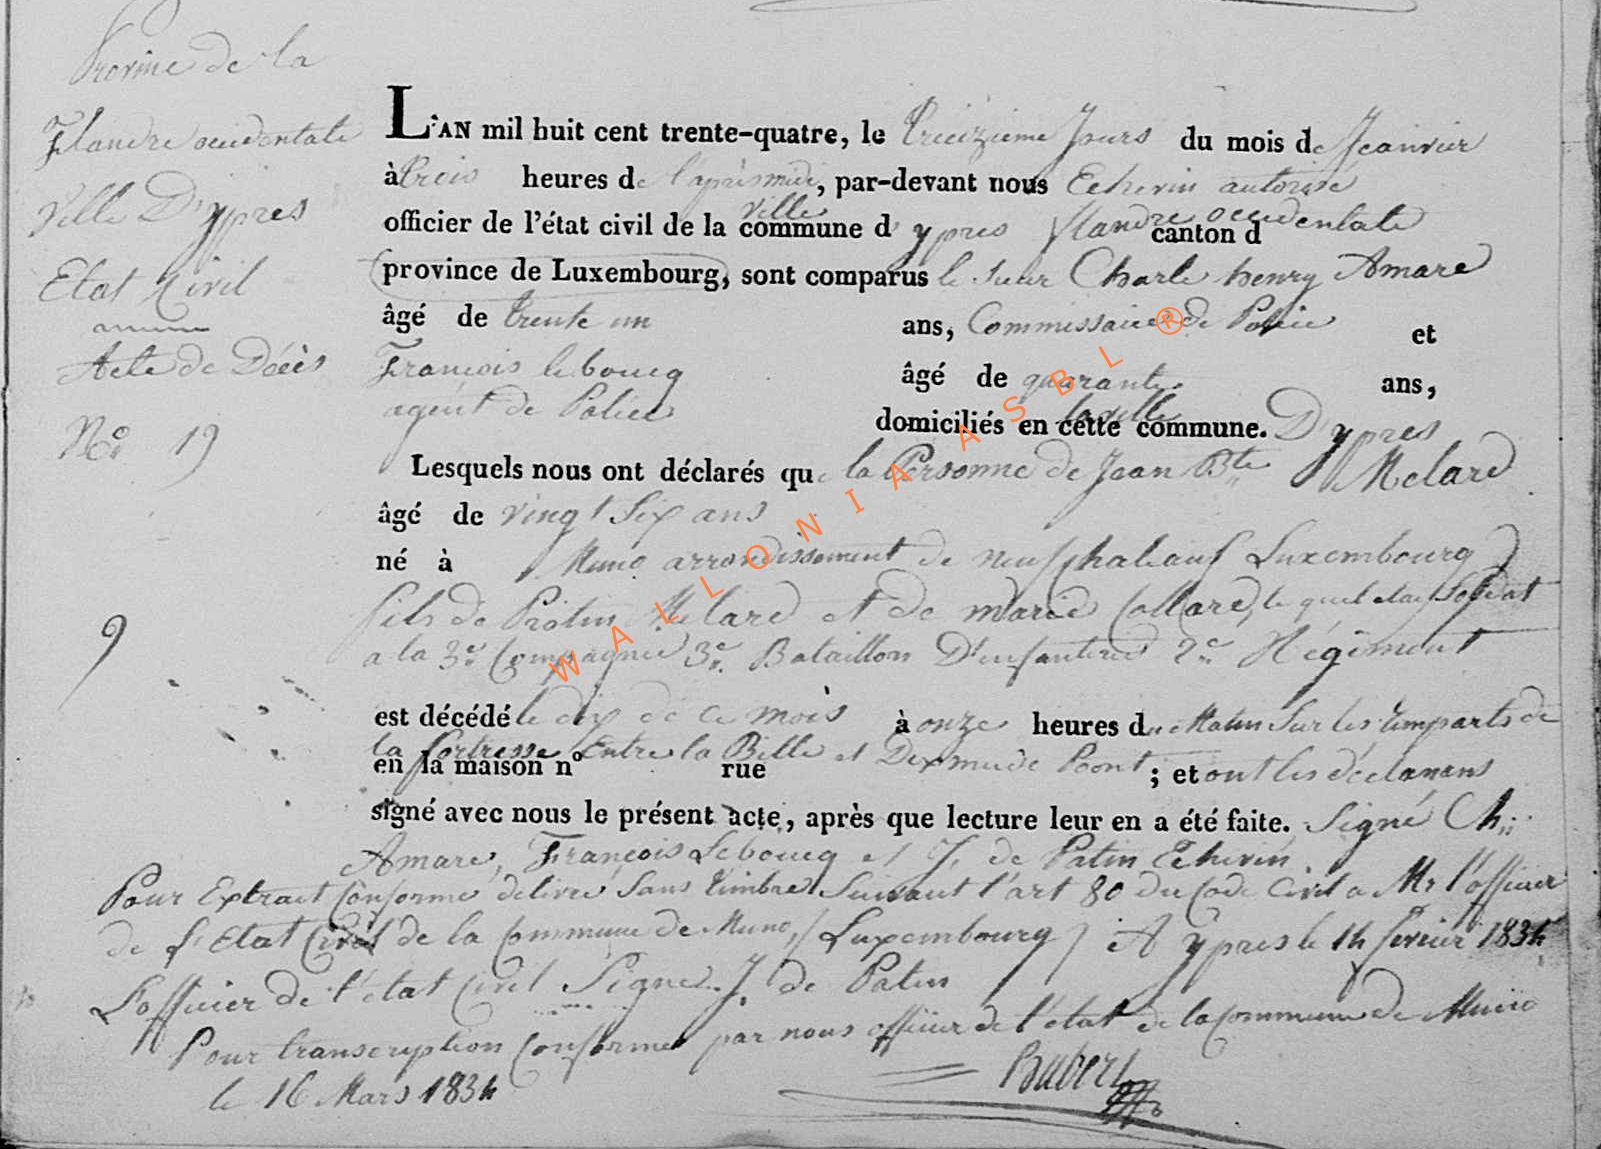 Provine de la
Flandre occidentale
Ville D'ypres
Etat Civil
Acte de Décès
No. 19
9
L'AN mil huit cent trente-quatre, le treizieme Jours du mois de Jeanvier
à trois heures de l'aprèsmidi, par-devant nous Echevin autorisé
officier de l'état civil de la commune ville d'ypres Flandre occidentale canton d
province de Luxembourg, sont comparus le sieur Charle henry Amare
âgé de trente un ans, Commissaire de Police et
François leboucq âgé de quarante ans,
agent de Police domiciliés en cette commune. la ville D'ypres
Lesquels nous ont déclarés que la Personne de Jean Bte Melard
âgé de vingt Six ans
né à Muno arrondissement de neufchateauf Luxembourg)
fils de Protin Melard et de marie Collard, le quel etai Soldat
a la 3e Compagnie 3e Bataillon D'infanterie 2e Régiment
est décédé le dix de ce mois à onze heures du Matin Sur les remparts de
la fortresse Entre la Bille et Dixmude Poont
en la maison n° rue ; et ont les déclarans
signé avec nous le présent acte, après que lecture leur en a été faite. Signé Ch:
Amare, François Leboucq et J. de Patin Echevin.
Pour Extrait Conforme délivré Sans timbre Suivant l'art 80 du Code Civil a Mr l'officier
de l'Etat Civil de la Commune de Muno, (Luxembourg) A ypres le 14 fevrier 1834
L'officier de l'état Civil Signé J. de Patin
Pour transcription Conforme par nous officier de l'état de la Commune de Muno
le 16 Mars 1834
Hubert
WALLONIA ASBL ®